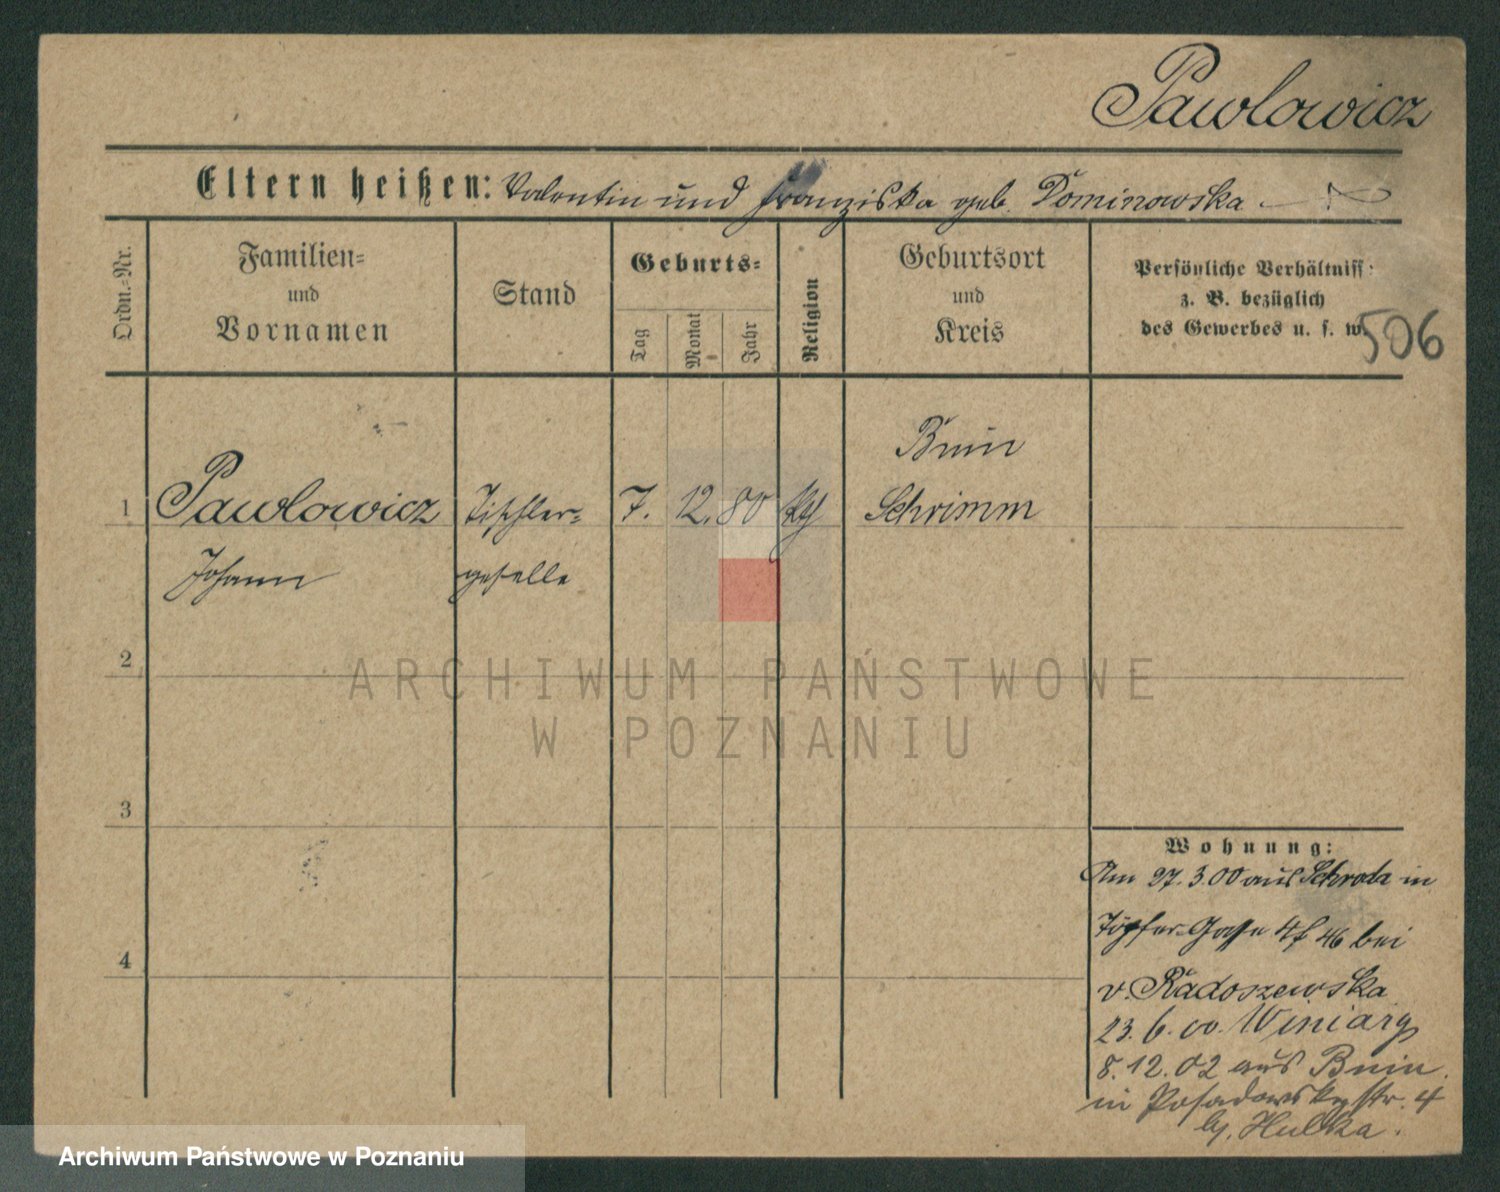 Pawlowicz
Eltern heißen: Valentin und Franziska geb. Dominowska
Ordn.-Nr.
Familien-
und
Vornamen
Stand
Geburts-
Tag
Monat
Jahr
Religion
Geburtsort
und
Kreis
Persönliche Verhältniss:
z. B. bezüglich
des Gewerbes u. s. w.
506
Bnin
1 Pawlowicz Tischler- 7. 12. 80 Schrimm
Johann geselle
2
ARCHIWUM PAŃSTWOWE
W POZNANIU
3
Wohnung:
Am 27. 3. 00 aus Schroda in
Töpfer Gasse 46 bei
4
v. Radoszewska
23. 6. 00. Winiary
8. 12. 02 aus Bnin
in Posadowskystr. 4
Hulka.
Archiwum Państwowe w Poznaniu